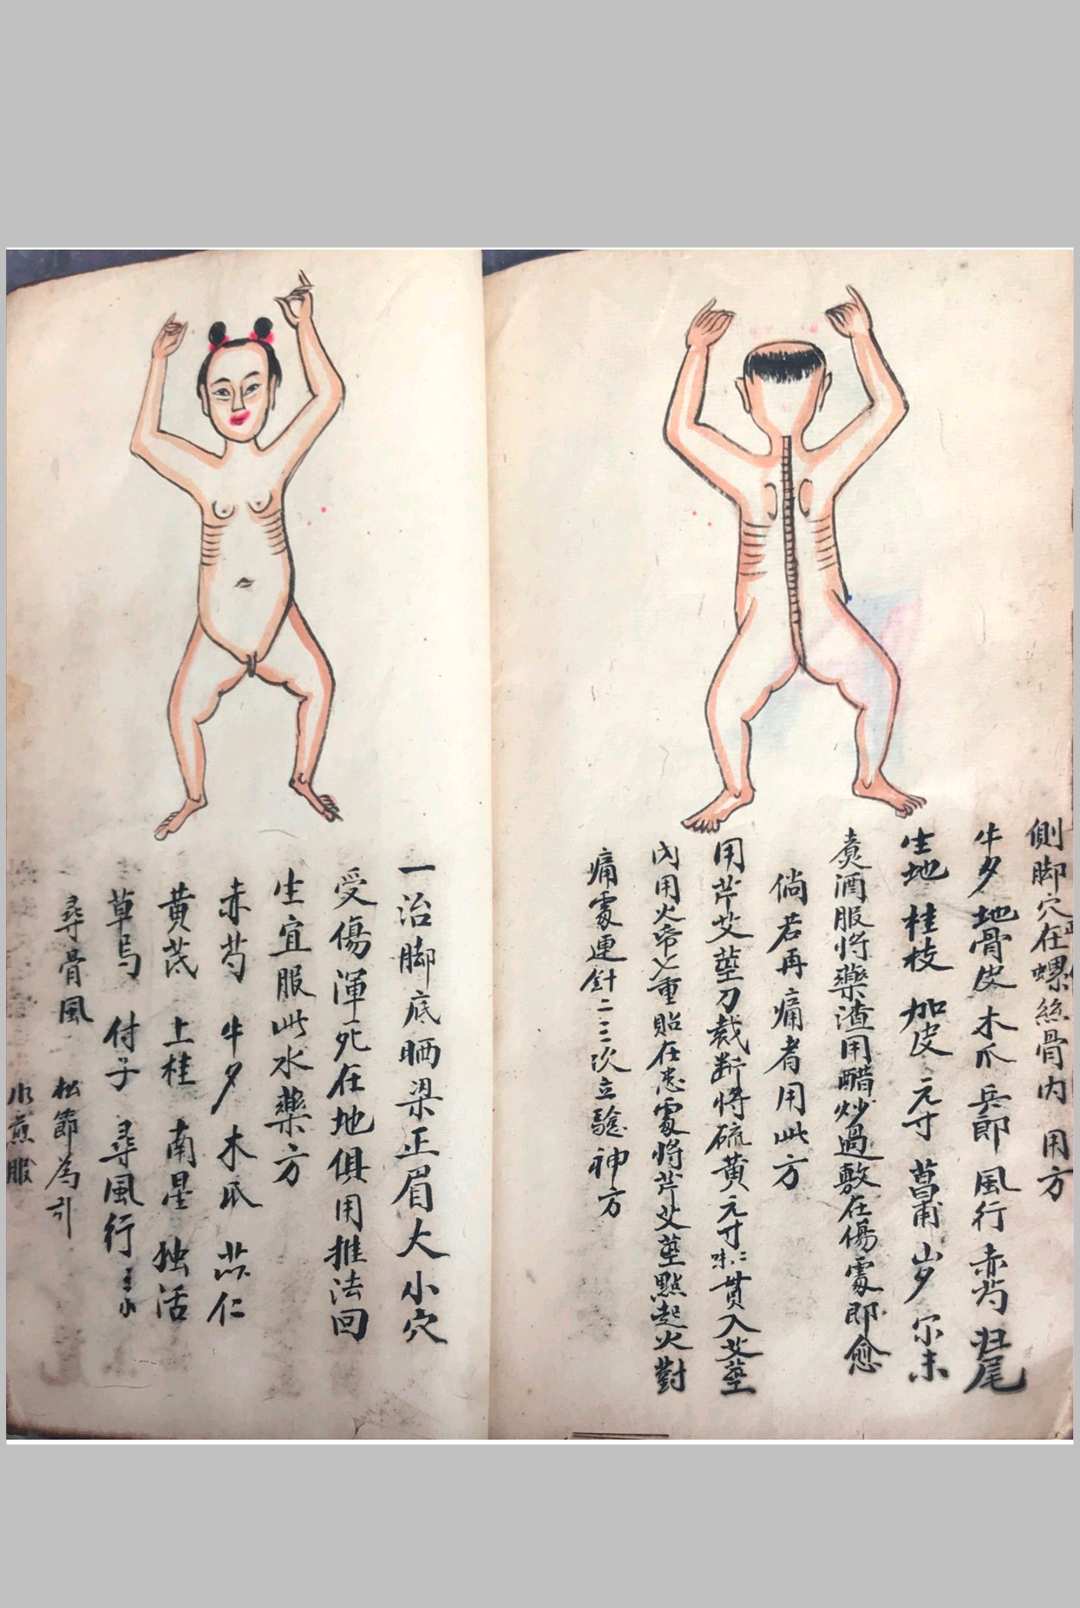 側脚穴在螺絲骨內 用方
牛夕 地骨皮 木爪 兵郎 風行 赤芍 归尾
生地 桂枝 加皮 元寸 菖甫 山夕 尔未
煮酒服将藥渣用醋炒過敷在傷處即愈
倘若再痛者用此方
用芹艾莖刀裁断将硫黄元寸味二貫入艾莖
內用火帋七重貼在患處将芹艾莖點起火對
痛處連針二三次立驗神方
一治脚底晒梁正眉大小穴
受傷渾死在地俱用推法回
生宜服此水藥方
赤芍 牛夕 木瓜 仁
黄芪 土桂 南星 独活
草烏 付子 尋風行
尋骨風 松節為引
水煎服